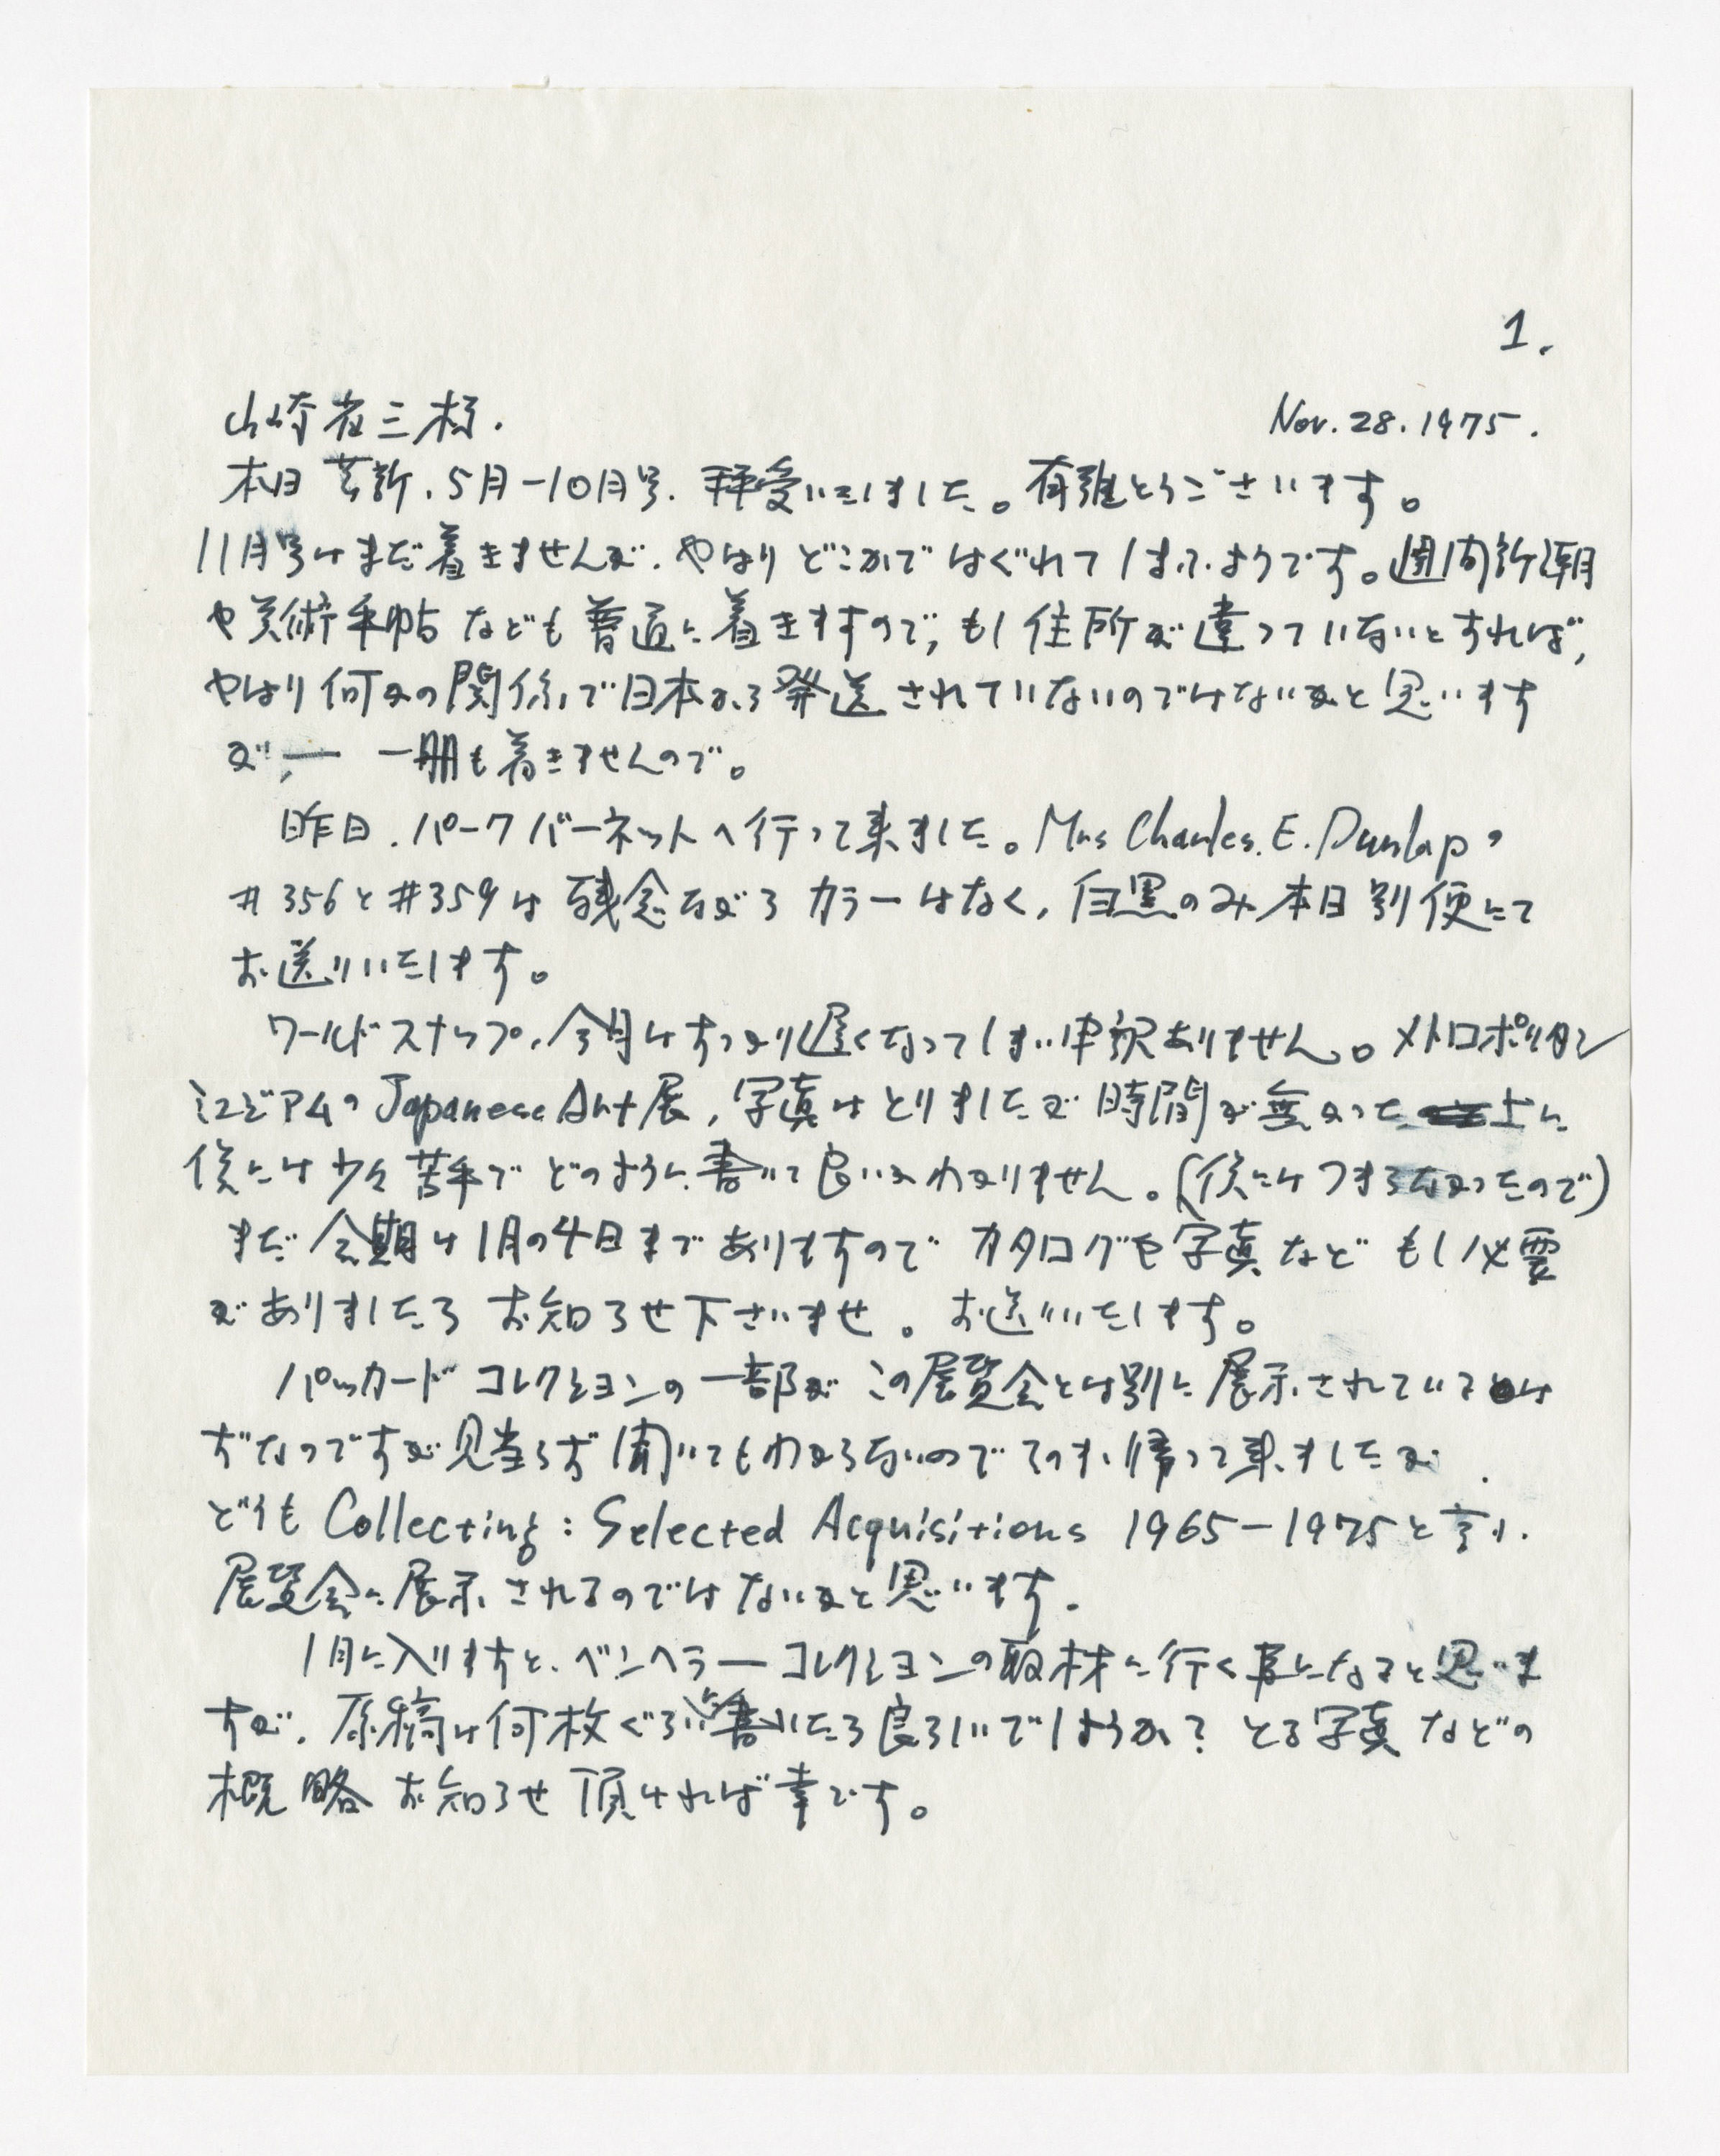 1.
山崎省三様. Nov. 28. 1975.
本日 芸新、5月-10月号、拝受いたしました。有難とうございます。
11月号はまだ着きませんが、やはりどこかではぐれてしまったようです。週間新潮
や美術手帖なども普通に着きますので、もし住所が違っていないとすれば、
やはり何かの関係で日本から発送されていないのではないかと思います
が、— 一冊も着きませんので。
昨日、パークバーネットへ行って来ました。Mrs Charles. E. Dunlapの
#356と#359は残念ながらカラーはなく、白黒のみ本日別便にて
お送りいたします。
ワールドスナップ、今月はすっかり遅くなってしまい申訳ありません。メトロポリタン
ミュゼアムの Japanese Art展、写真はとりましたが時間が無かった上に
僕には少々苦手でどのように書いて良いかわかりません。(僕にはつまらなかったので)
まだ会期は1月の4日までありますのでカタログや写真などもし必要
がありましたらお知らせ下さいませ。お送りいたします。
パッカードコレクションの一部がこの展覧会とは別に展示されているは
ずなのですが見当らず聞いてもわからないのでそのまゝ帰って来ましたが
どうも Collecting: Selected Acquisitions 1965-1975と言う、
展覧会に展示されるのではないかと思います.
1月に入りますと、ベンヘラーコレクションの取材に行く事になると思いま
すが、原稿は何枚ぐらい書いたら良ろしいでしょうか? とる写真などの
概略お知らせ頂ければ幸です。